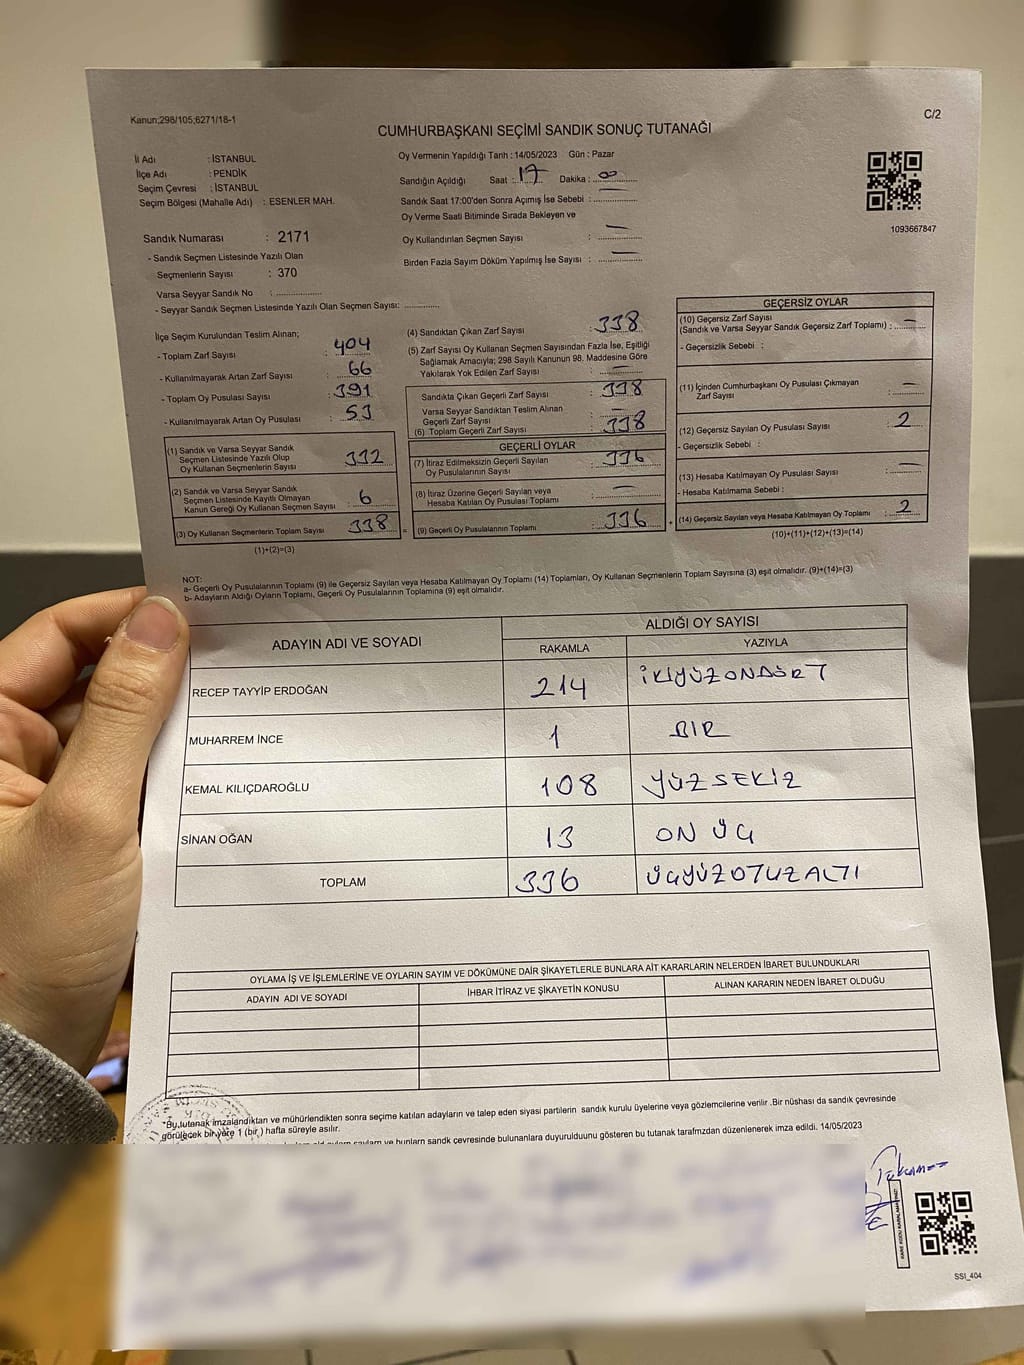 Kanun;298/105;6271/18-1
C/2
CUMHURBAŞKANI SEÇİMİ SANDIK SONUÇ TUTANAĞI
İl Adı : İSTANBUL
İlçe Adı : PENDİK
Seçim Çevresi : İSTANBUL
Seçim Bölgesi (Mahalle Adı) : ESENLER MAH.
Sandık Numarası : 2171
- Sandık Seçmen Listesinde Yazılı Olan
Seçmenlerin Sayısı : 370
Varsa Seyyar Sandık No : ..................
- Seyyar Sandık Seçmen Listesinde Yazılı Olan Seçmen Sayısı: ..............
Oy Vermenin Yapıldığı Tarih : 14/05/2023 Gün : Pazar
Sandığın Açıldığı Saat : 17 Dakika : 00
Sandık Saat 17:00'den Sonra Açımış İse Sebebi : ..................
Oy Verme Saati Bitiminde Sırada Bekleyen ve
Oy Kullandırılan Seçmen Sayısı : —
Birden Fazla Sayım Döküm Yapılmış İse Sayısı : —
1093667847
İlçe Seçim Kurulundan Teslim Alınan;
- Toplam Zarf Sayısı : 404
- Kullanılmayarak Artan Zarf Sayısı : 66
- Toplam Oy Pusulası Sayısı : 391
- Kullanılmayarak Artan Oy Pusulası : 53
(1) Sandık ve Varsa Seyyar Sandık
Seçmen Listesinde Yazılı Olup
Oy Kullanan Seçmenlerin Sayısı : 332
(2) Sandık ve Varsa Seyyar Sandık
Seçmen Listesinde Kayıtlı Olmayan
Kanun Gereği Oy Kullanan Seçmen Sayısı : 6
(3) Oy Kullanan Seçmenlerin Toplam Sayısı : 338
(1)+(2)=(3)
(4) Sandıktan Çıkan Zarf Sayısı : 338
(5) Zarf Sayısı Oy Kullanan Seçmen Sayısından Fazla İse, Eşitliği
Sağlamak Amacıyla; 298 Sayılı Kanunun 98. Maddesine Göre
Yakılarak Yok Edilen Zarf Sayısı : —
Sandıkta Çıkan Geçerli Zarf Sayısı : 338
Varsa Seyyar Sandıktan Teslim Alınan
Geçerli Zarf Sayısı : —
(6) Toplam Geçerli Zarf Sayısı : 338
GEÇERLİ OYLAR
(7) İtiraz Edilmeksizin Geçerli Sayılan
Oy Pusulalarının Sayısı : 336
(8) İtiraz Üzerine Geçerli Sayılan veya
Hesaba Katılan Oy Pusulası Toplamı : —
= (9) Geçerli Oy Pusulalarının Toplamı : 336 +
GEÇERSİZ OYLAR
(10) Geçersiz Zarf Sayısı
(Sandık ve Varsa Seyyar Sandık Geçersiz Zarf Toplamı) : —
- Geçersizlik Sebebi :
(11) İçinden Cumhurbaşkanı Oy Pusulası Çıkmayan
Zarf Sayısı : —
(12) Geçersiz Sayılan Oy Pusulası Sayısı : 2
- Geçersizlik Sebebi :
(13) Hesaba Katılmayan Oy Pusulası Sayısı : —
- Hesaba Katılmama Sebebi :
(14) Geçersiz Sayılan veya Hesaba Katılmayan Oy Toplamı : 2
(10)+(11)+(12)+(13)=(14)
NOT:
a- Geçerli Oy Pusulalarının Toplamı (9) ile Geçersiz Sayılan veya Hesaba Katılmayan Oy Toplamı (14) Toplamları, Oy Kullanan Seçmenlerin Toplam Sayısına (3) eşit olmalıdır. (9)+(14)=(3)
b- Adayların Aldığı Oyların Toplamı, Geçerli Oy Pusulalarının Toplamına (9) eşit olmalıdır.
ADAYIN ADI VE SOYADI ALDIĞI OY SAYISI
RAKAMLA YAZIYLA
RECEP TAYYİP ERDOĞAN 214 İKİYÜZONDÖRT
MUHARREM İNCE 1 BİR
KEMAL KILIÇDAROĞLU 108 YÜZSEKİZ
SİNAN OĞAN 13 ON ÜÇ
TOPLAM 336 ÜÇYÜZOTUZALTI
OYLAMA İŞ VE İŞLEMLERİNE VE OYLARIN SAYIM VE DÖKÜMÜNE DAİR ŞİKAYETLERLE BUNLARA AİT KARARLARIN NELERDEN İBARET BULUNDUKLARI
ADAYIN ADI VE SOYADI İHBAR İTİRAZ VE ŞİKAYETİN KONUSU ALINAN KARARIN NEDEN İBARET OLDUĞU
*Bu tutanak imzalandıktan ve mühürlendikten sonra seçime katılan adayların ve talep eden siyasi partilerin sandık kurulu üyelerine veya gözlemcilerine verilir .Bir nüshası da sandık çevresinde
görülecek bir yere 1 (bir ) hafta süreyle asılır.
ve bunların sandık çevresinde bulunanlara duyurulduunu gösteren bu tutanak tarafmzdan düzenlenerek imza edildi. 14/05/2023
SSI_404